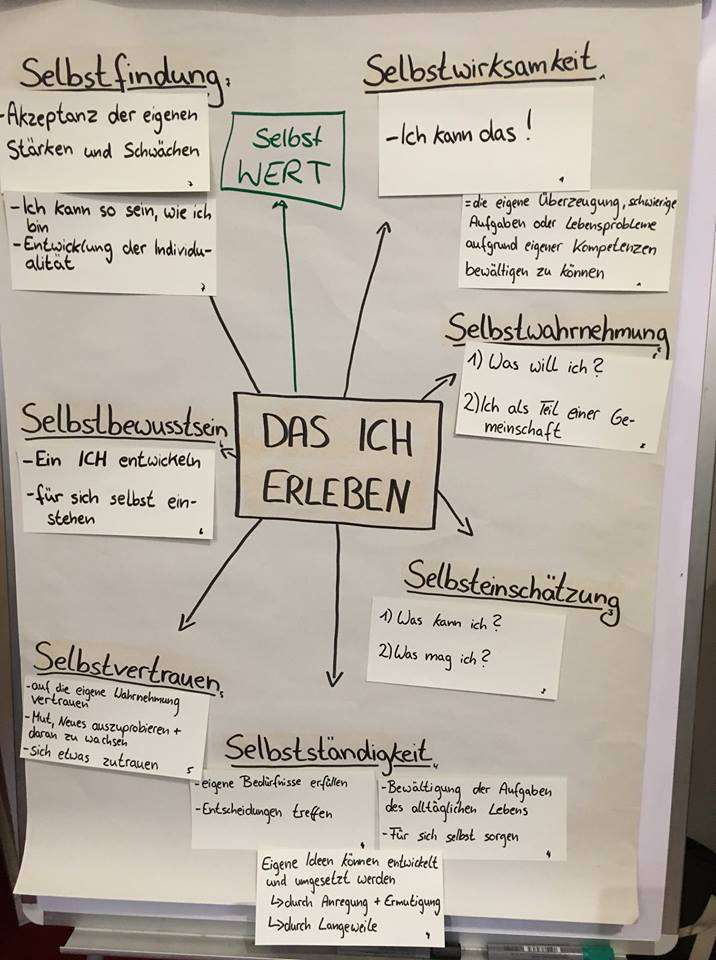 Selbstfindung
-Akzeptanz der eigenen
Stärken und Schwächen
7
-Ich kann so sein, wie ich
bin
-Entwicklung der Individu-
alität
7
Selbst
WERT
Selbstwirksamkeit
-Ich kann das!
1
=die eigene Überzeugung, schwierige
Aufgaben oder Lebensprobleme
aufgrund eigener Kompetenzen
bewältigen zu können
1
Selbstwahrnehmung
1) Was will ich?
2) Ich als Teil einer Ge-
meinschaft
2
DAS ICH
ERLEBEN
Selbstbewusstsein
-Ein ICH entwickeln
-für sich selbst ein-
stehen
6
Selbsteinschätzung
1) Was kann ich?
2) Was mag ich?
3
Selbstvertrauen
-auf die eigene Wahrnehmung
vertrauen
-Mut, Neues auszuprobieren +
daran zu wachsen
-Sich etwas zutrauen
5
Selbstständigkeit
-eigene Bedürfnisse erfüllen
-Entscheidungen treffen
4
-Bewältigung der Aufgaben
des alltäglichen Lebens
-Für sich selbst sorgen
4
Eigene Ideen können entwickelt
und umgesetzt werden
↳durch Anregung + Ermutigung
↳durch Langeweile
4